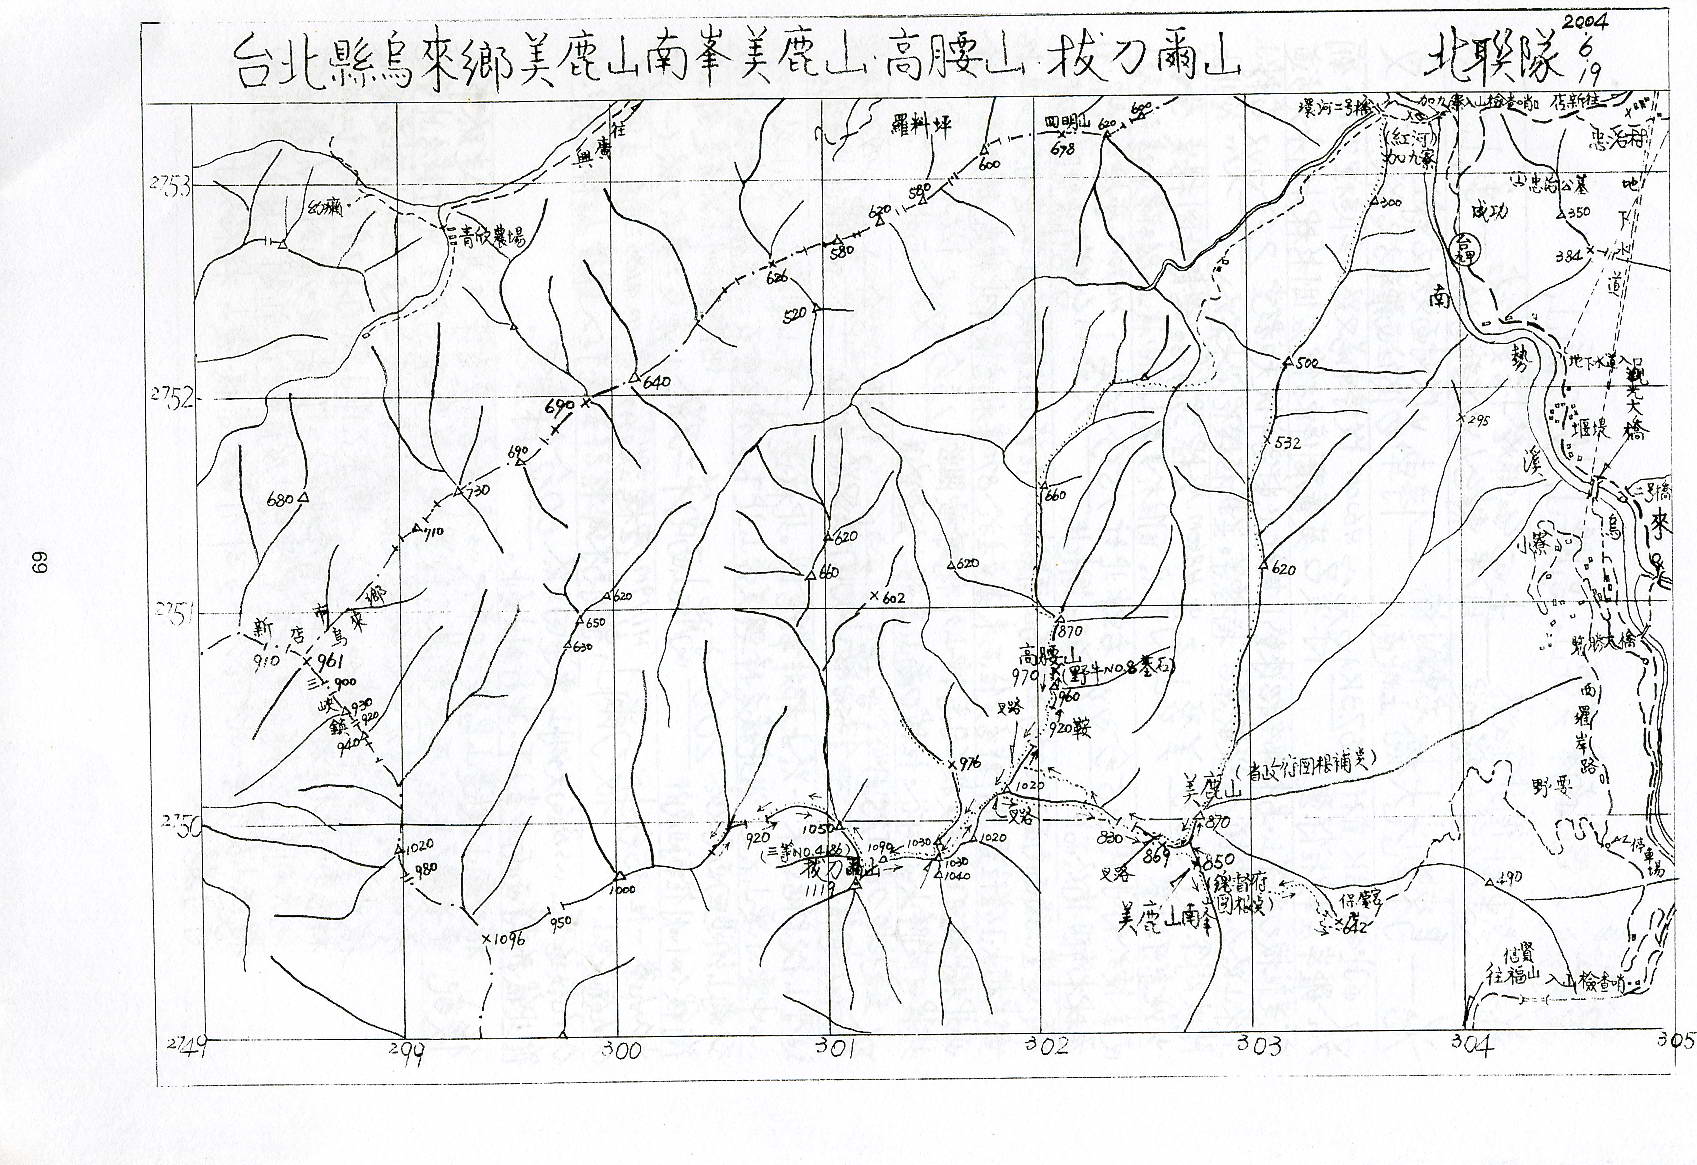 台北縣烏來鄉美鹿山南峯美鹿山.高腰山.拔刀爾山
北聯隊
2004
6
19
往廣興
羅料坪
四明山
678
620
690
600
580
620
580
626
520
環河二号橋
(紅河)
加九寮
忠治公墓
成功
台電
300
350
384
地下水道
2753
青欣農場
南勢溪
640
690
690
500
地下水道入口
觀光大橋
295
堰堤
532
2752
680
730
710
660
620
660
620
620
602
二号橋
烏來
2751
新店市
烏來鄉
910
961
900
三峽鎮
930
920
940
620
650
630
870
高腰山
970
(野牛NO.8基石)
960
叉路
920鞍
976
1020
叉路
美鹿山(省政府図根補点)
870
西羅岸路
野要
停車場
2750
1020
980
1000
920
1050
(三等NO.4136)
拔刀爾山
1119
1090
1030
1030
1040
1020
830
869
叉路
850
(總督府
図根点)
美鹿山南峯
保慶宮
642
490
1096
950
信賢
往福山
入山檢查哨
2749
299
300
301
302
303
304
305
69